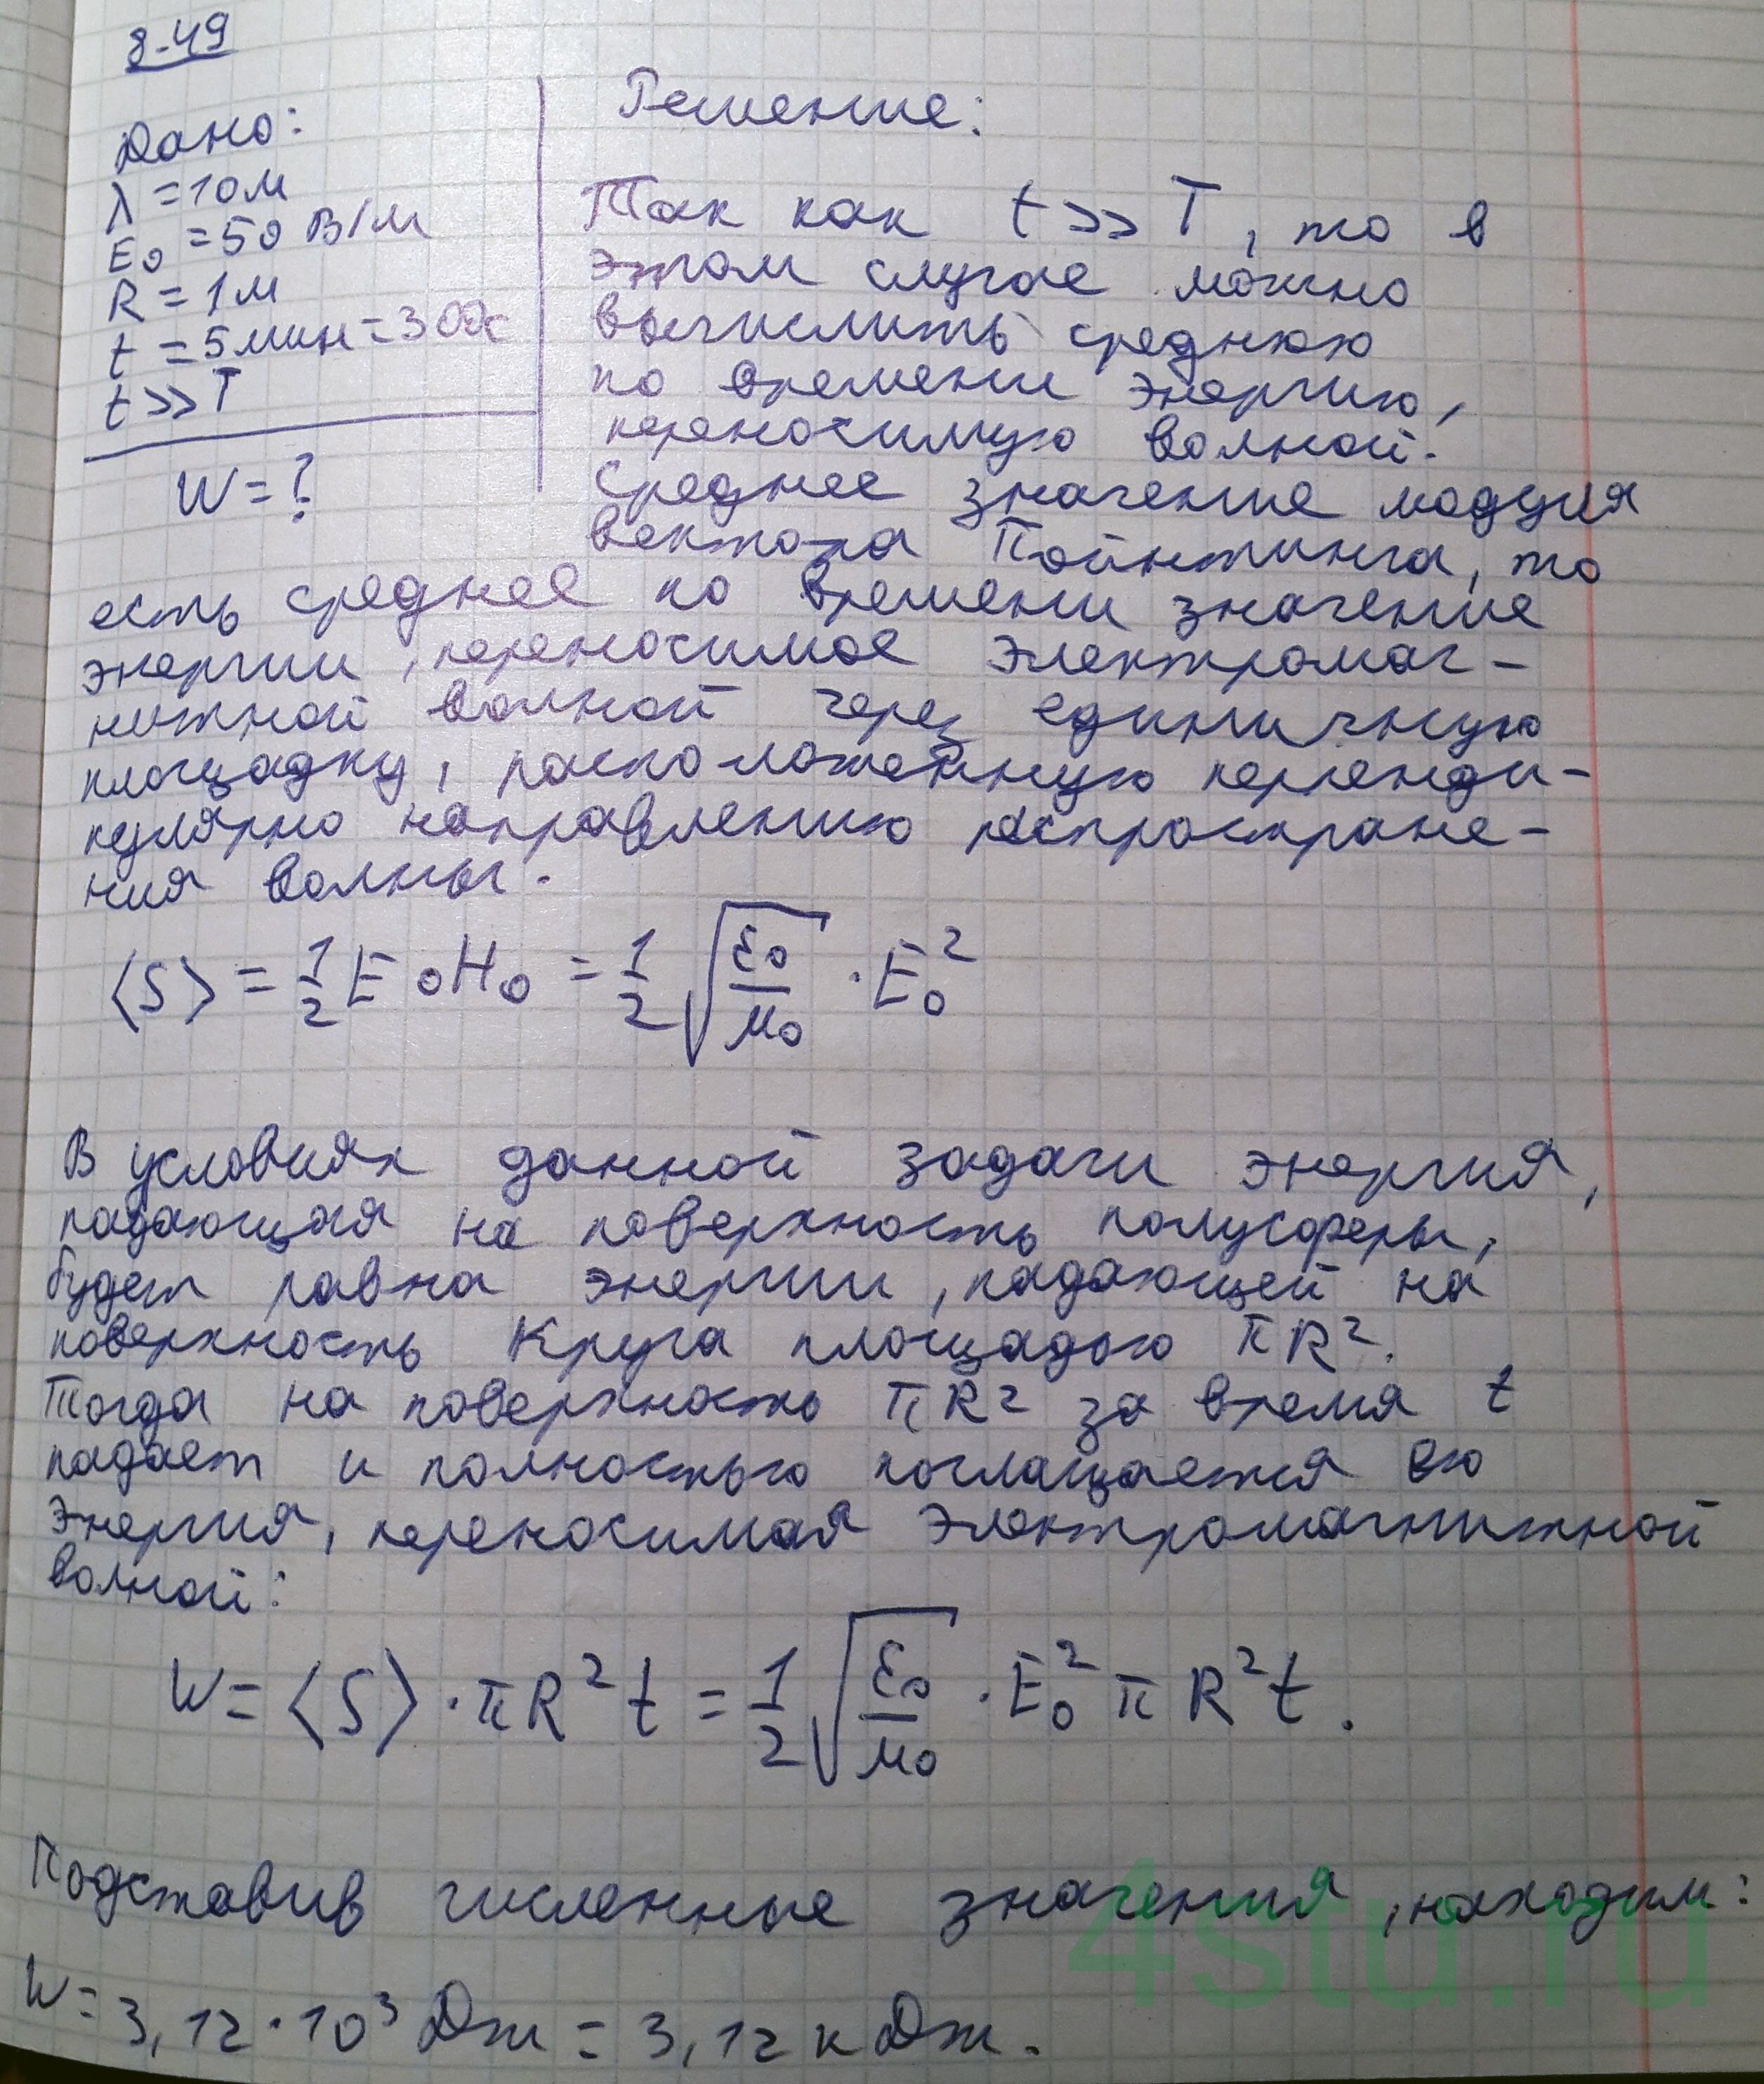 8-49
Дано:
λ = 10 м
E₀ = 50 В/м
R = 1 м
t = 5 мин = 300с
t >> T
W = ?
Решение:
Так как t >> T, то в
этом случае можно
вычислить среднюю
по времени энергию,
переносимую волной.
Среднее значение модуля
вектора Пойнтинга, то
есть среднее по времени значение
энергии, переносимое электромаг-
нитной волной через единичную
площадку, расположенную перпенди-
кулярно направлению распростране-
ния волны.
⟨S⟩ = 1/2 E₀H₀ = 1/2 √(ε₀/μ₀) · E₀²
В условиях данной задачи энергия,
падающая на поверхность полусферы,
будет равна энергии, падающей на
поверхность круга площадью πR².
Тогда на поверхность πR² за время t
падает и полностью поглащается ею
энергия, переносимая электромагнитной
волной:
W = ⟨S⟩ · πR²t = 1/2 √(ε₀/μ₀) · E₀² πR²t.
Подставив численные значения, находим:
W = 3,12 · 10³ Дж = 3,12 кДж.
4stu.ru